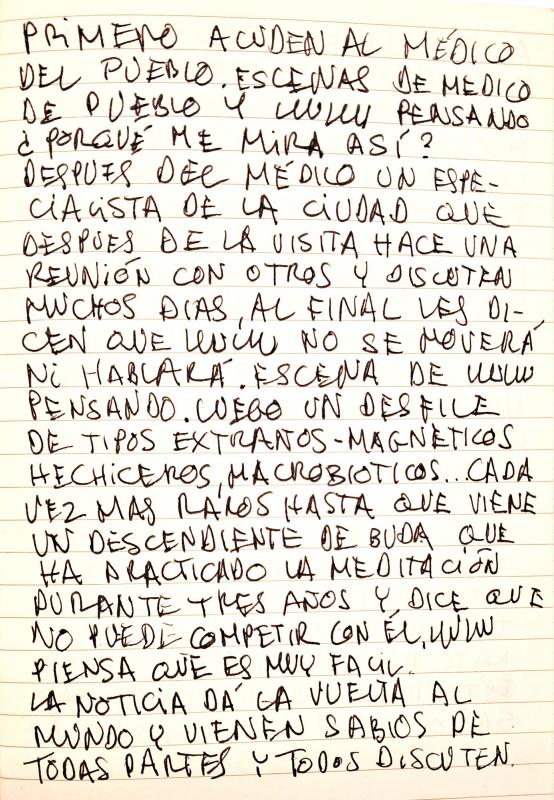 PRIMERO ACUDEN AL MÉDICO
DEL PUEBLO. ESCENAS DE MEDICO
DE PUEBLO Y LULU PENSANDO
¿PORQUÉ ME MIRA ASÍ?
DESPUES DEL MÉDICO UN ESPE-
CIALISTA DE LA CIUDAD QUE
DESPUES DE LA VISITA HACE UNA
REUNIÓN CON OTROS Y DISCUTEN
MUCHOS DIAS, AL FINAL LES DI-
CEN QUE LULU NO SE MOVERÁ
NI HABLARÁ. ESCENA DE LULU
PENSANDO. LUEGO UN DESFILE
DE TIPOS EXTRAÑOS-MAGNÉTICOS
HECHICEROS, MACROBIOTICOS... CADA
VEZ MAS RAROS HASTA QUE VIENE
UN DESCENDIENTE DE BUDA QUE
HA PRACTICADO LA MEDITACIÓN
DURANTE TRES AÑOS Y DICE QUE
NO PUEDE COMPETIR CON ÉL, LULU
PIENSA QUE ES MUY FACIL.
LA NOTICIA DÁ LA VUELTA AL
MUNDO Y VIENEN SABIOS DE
TODAS PARTES Y TODOS DISCUTEN.